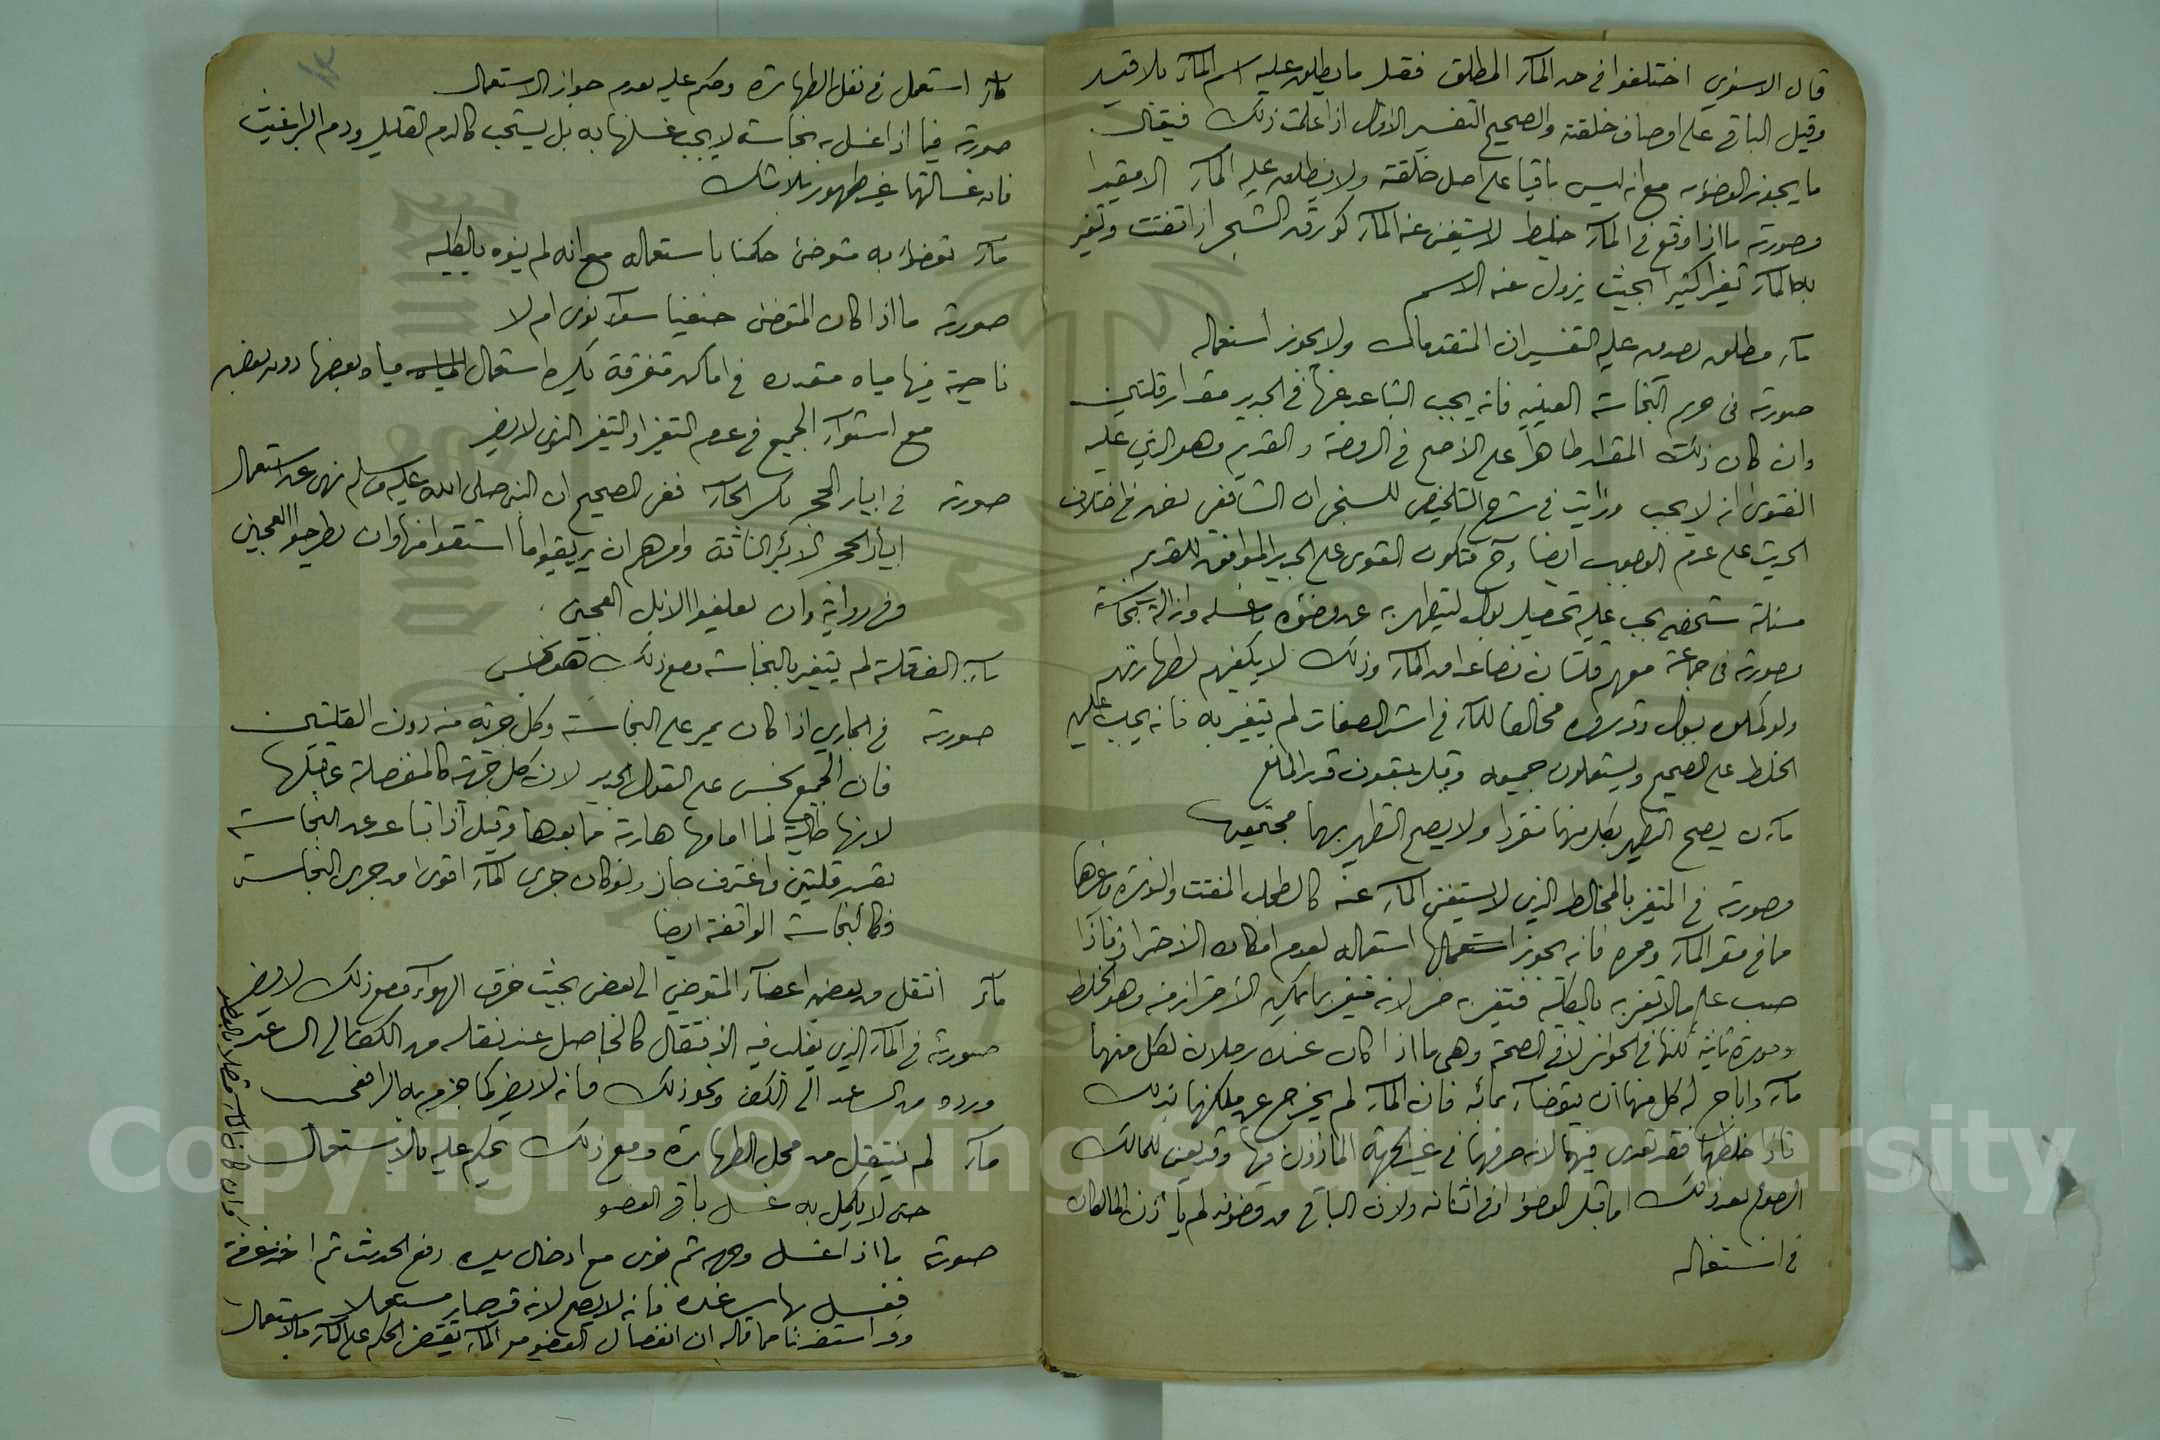 قال الاسنوي اختلفوا في حد المآء المطلق فقيل ما يطلق عليه اسم المآء بلا قيد
وقيل الباقي على اوصاف خلقته والصحيح التفسير الاول اذا علمت ذلك فيقال
ما يجوز الوضوء به مع انه ليس باقيا على اصل خلقته ولا يطلق عليه المآء الا مقيدا
وصورته ما اذا وقع في المآء خليط لا يستغنى عنه المآء كورق الشجر اذا تفتت وتغير
به المآء تغيرا كثيرا بحيث يزول عنه الاسم
مآء مطلق يصدق عليه التفسيران المتقدمان ولا يجوز استعماله
صورته في حريم النجاسة العينيه فانه يجب التباعد عنها في الجديد مقدار قلتين
وان كان ذلك المقدار طاهرا على الاصح في الروضة والقديم وهو الذي عليه
الفتوى انه لا يجب ورايت في شرح التلخيص للسنجي ان الشافعي نص في اختلاف
الحديث على عدم الوجوب ايضا وح فتكون الفتوى على الجديد الموافق للقديم
مسئلة شخص يجب عليه تحصيل بول ليتطهر به عن وضوء وغسل وازالة نجاسة
وصورته في جماعة معهم قلتان فصاعدا من المآء وذلك لا يكفيهم لطهارتهم
ولو كملوه ببول وقدروه مخالفا للمآء في اشد الصفات لم يتغير به فانه يجب عليهم
الخلط على الصحيح ويستعملون جميعه وقيل يبقون قدر المائع
مآءن يصح التطهير بكل منهما منفردا ولا يصح التطهير بهما مجتمعين
وصورته في المتغير بالمخالط الذي لا يستغنى المآء عنه كالطحلب المفتت والنورة وغيرها
مما في مقر المآء وممره فانه يجوز استعماله لعدم امكان الاحتراز فاذا
صب على ما لا تغير به بالكلية فتغير به ضر لانه تغير بما يمكن الاحتراز منه وهو الخلط
وصورة ثانية لكنها في الجواز لا في الصحة وهي ما اذا كان عنده رجلان لكل منهما
مآء واباح له كل منهما ان يتوضأ بمائه فان المآء لم يخرج عن ملكهما بذلك
فاذا خلطهما فقد تعدى فيهما لانه صرفهما في غير الجهة الماذون فيها وقد يعين للمالك
الرجوع بعد ذلك اما قبل الوضوء او في اثنائه ولان الباقي من وضوئه لم ياذن المالكان
في استعماله
مآء استعمل في نفل الطهارة وحكم عليه بعدم جواز الاستعمال
صورته فيما اذا غسل به نجاسة لا يجب غسلها به بل يستحب كالدم القليل ودم البراغيث
فان غسالتها غير طهور بلا شك
مآء توضأ به متوضئ حكمنا باستعماله مع انه لم ينوه بالكليه
صورته ما اذا كان المتوضئ حنفيا سوآء نوى ام لا
ناحية فيها مياه متعدده في اماكن متفرقة يكره استعمال مياه بعضها دون بعض
مع استوآء الجميع في عدم التغير او التغير الذي لا يضر
صورته في ابيار الحجر بكسر الحآء ففي الصحيح ان النبي صلى الله عليه وسلم نهى عن استعمال
ابيار الحجر الا بئر الناقة وامرهم ان يريقوا ما استقوا منها وان يطرحوا العجين
وفي رواية وان يعلفوا الابل العجين
مآء الف قلة لم يتغير بالنجاسة ومع ذلك هو نجس
صورته في الجاري اذا كان يمر على النجاسة وكل جرية منه دون القلتين
فان الجميع نجس على القول الجديد لان كل جرية كالمنفصلة عما قبلها
لانها طالبة لما امامها هاربة مما بعدها وقيل اذا تباعد عن النجاسة
بقدر قلتين واغترف جاز ولو كان جرى المآء اقوى من جري النجاسة
فكالنجاسة الواقفة ايضا
مآء انتقل من بعض اعضآء المتوضي الى بعض بحيث خرق الهوآء ومع ذلك لا يضر
صورته في المآء الذي يغلب فيه الانتقال كالحاصل عند نقله من الكف الى الساعد
ورده من الساعد الى الكف ونحو ذلك فانه لا يضر كما جزم به الرافعي
مآء لم ينتقل من محل الطهارة ومع ذلك يحكم عليه بالاستعمال
حتى لا يكمل به غسل باقي العضو
صورته ما اذا غسل وجهه ثم نوى مع ادخال يده رفع الحدث ثم اخذ غرفة
فغسل بها ساعده فانه لا يصح لانه قد صار مستعملا
وقد استفدنا مما قاله ان انفصال العضو مع المآء يقتضي الحكم على المآء بالاستعمال
وان كان المآء متصلا بالعضو
Copyright © King Saud University